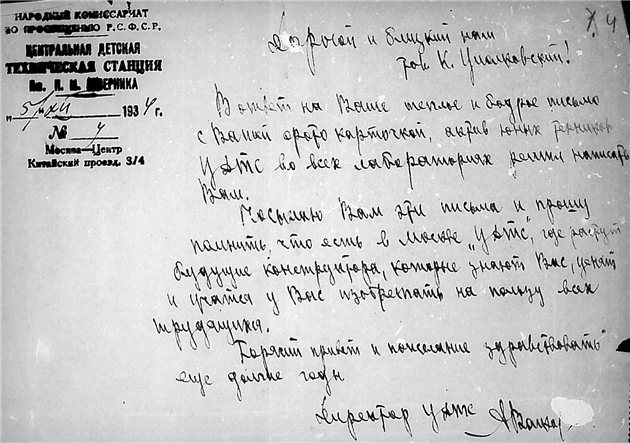 НАРОДНЫЙ КОМИССАРИАТ
ПО ПРОСВЕЩЕНИЮ Р.С.Ф.С.Р.
ЦЕНТРАЛЬНАЯ ДЕТСКАЯ
ТЕХНИЧЕСКАЯ СТАНЦИЯ
Им. Н. М. ШВЕРНИКА
„5/XII 1934 г.
№ 4
Москва—Центр
Китайский проезд, 3/4
4
Дорогой и близкий нам
тов. К. Циолковский!
В ответ на Ваше теплое и бодрое письмо
с Вашей фото карточкой, актив юных техников
ЦДТС во всех лабораториях решил написать
Вам.
Посылаю Вам эти письма и прошу
помнить, что есть в Москве „ЦДТС", где растут
будущие конструктора, которые знают Вас, ценят
и учатся у Вас изобретать на пользу всех
трудящихся.
Горячий привет и пожелание здравствовать
еще долгие годы
Директор ЦДТС